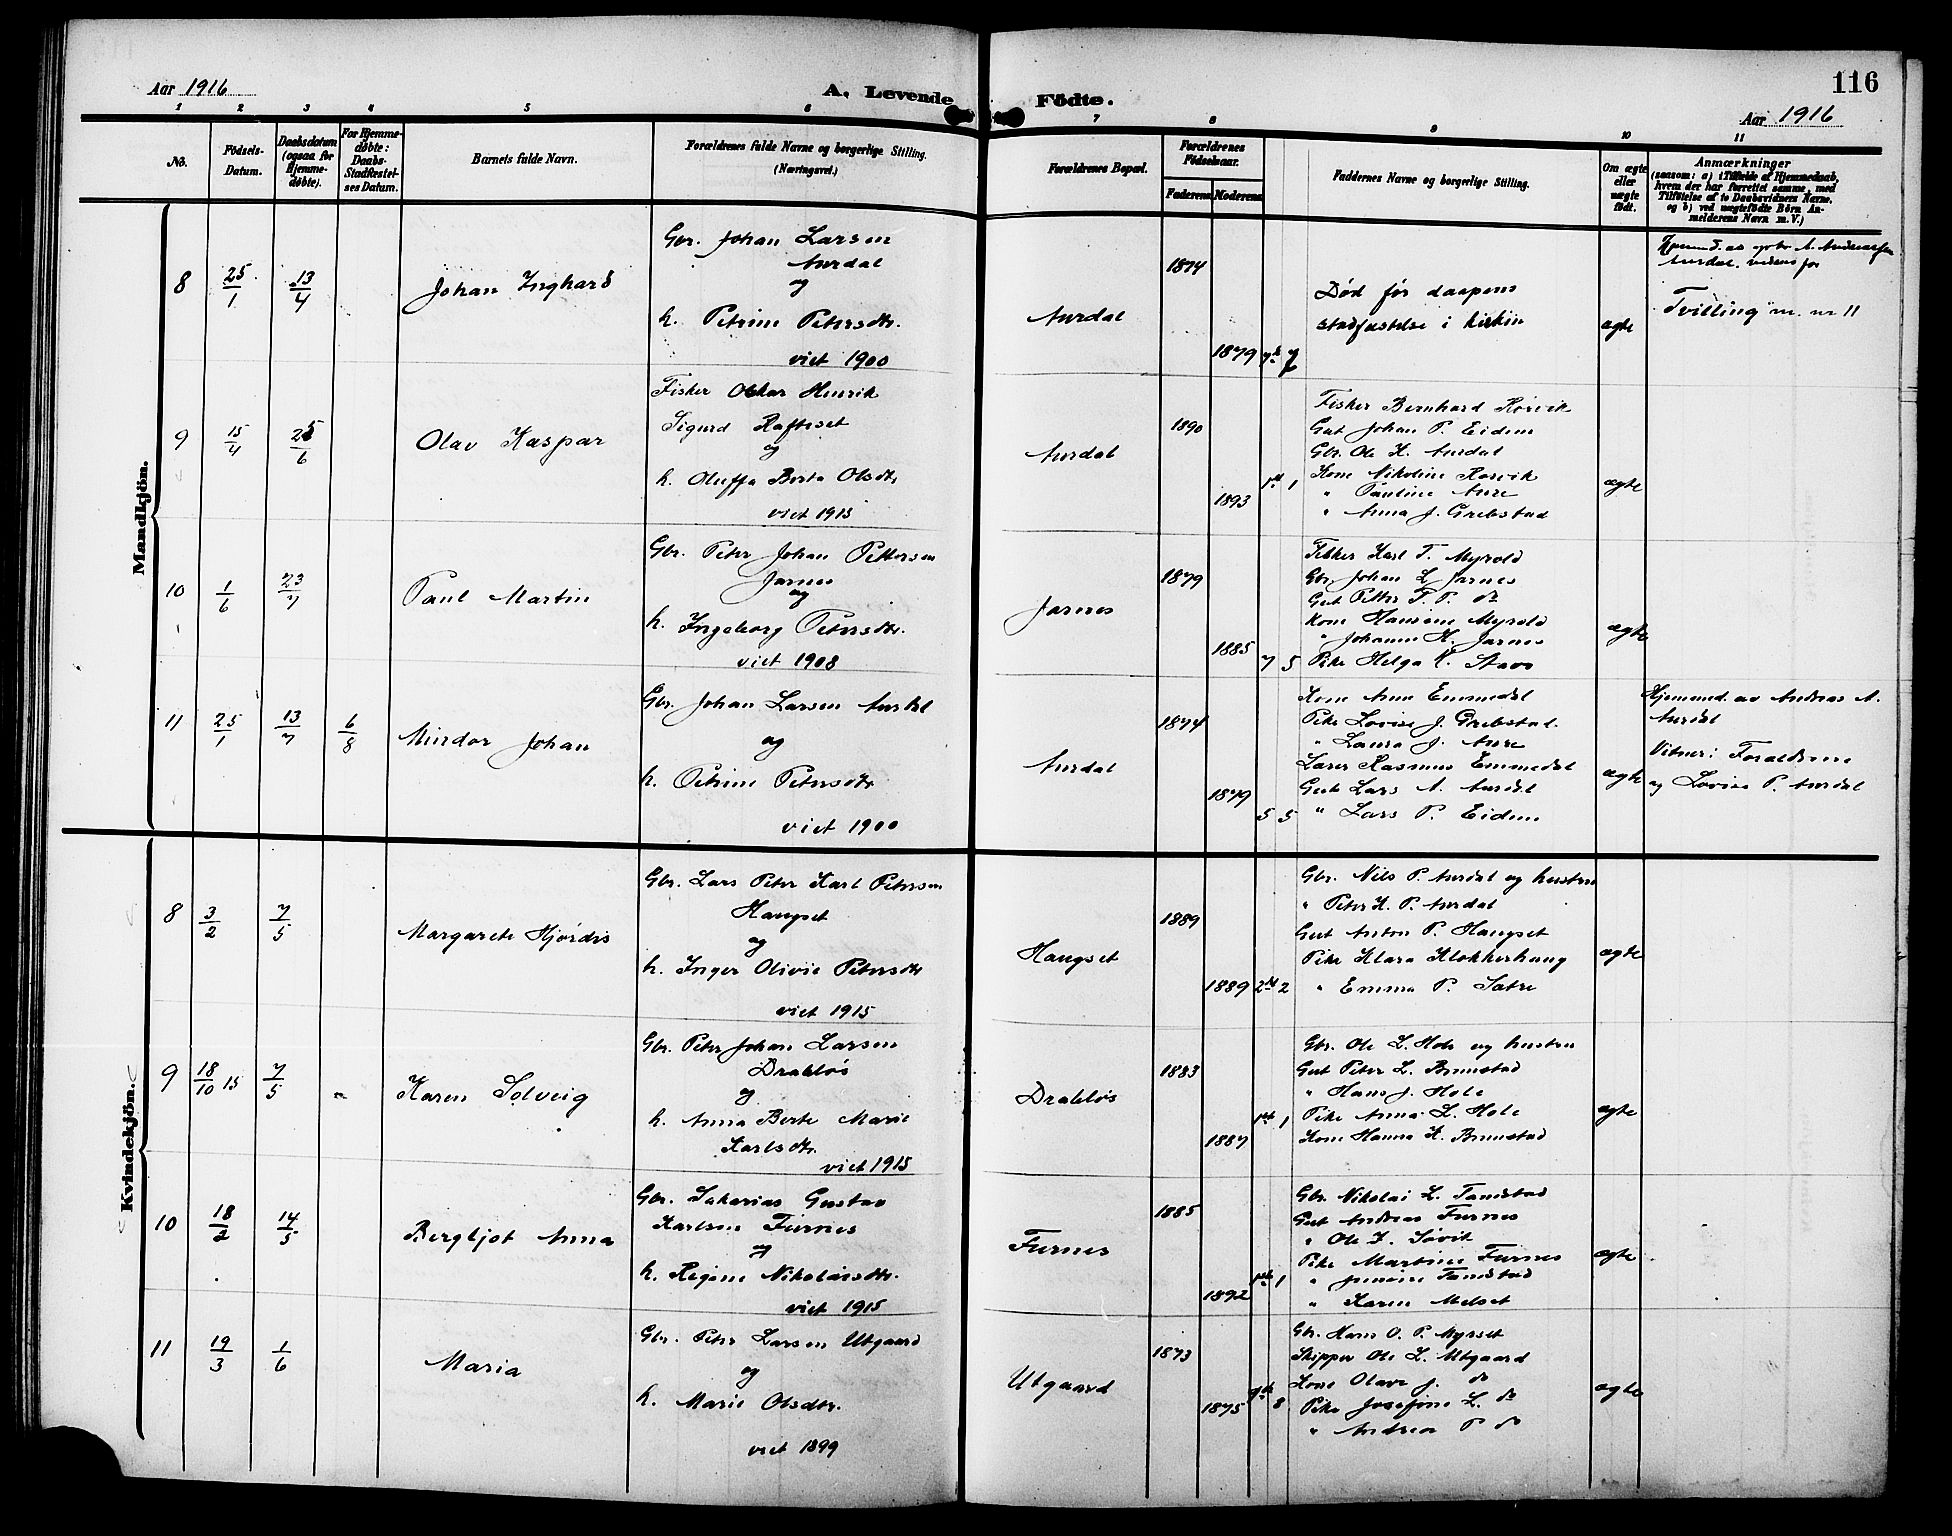 Aar 1916
A. Levende
Födte.
116
Aar 1916
1 2 3 4 5 6 7 8 9 10 11
No.
Födsels-
Datum.
Daabsdatum
(ogsaa for
Hjemme-
döbte).
For Hjemme-
döbte:
Daabs-
Stadfæstel-
ses Datum.
Barnets fulde Navn.
Forældrenes fulde Navne og borgerlige Stilling.
(Næringsvei.)
Forældrenes Bopæl.
Forældrenes
Födselsaar.
Faderens
Moderens
Faddernes Navne og borgerlige Stilling.
Om ægte
eller
uægte
födt.
Anmærkninger
(saasom: a) i Tilfælde af Hjemmedaab,
hvem der har forrettet samme, med
Tilföielse af to Daabsvidners Navne,
og b) ved uægtefödte Börn An-
melderens Navn m. V.)
Mandkjön.
8
25/1
13/4
Johan Inghard
Gbr. Johan Larsen
Aurdal
og
h. Petrine Petersdtr.
viet 1900
Aurdal
1874
1879
7
Død før daapens
stadfæstelse i kirken
ægte
Aurdal
Tvilling m. nr 11
9
15/4
25/6
Olav Kaspar
Fisker Oskar Henrik
Sigurd Hafteset
og
h. Oluffa Berta Olsdtr
viet 1915
Aurdal
1890
1893
1
Fisker Bernhard Rørvik
Gut Johan P. Eidem
Gbr. Ole K. Aurdal
Kone Nikoline Rørvik
" Pauline Aure
" Anna J. Grebstad
ægte
10
1/6
23/7
Paul Martin
Gbr. Peter Johan Pettersen
Jarnes
og
h. Ingeborg Petersdtr.
viet 1908
Jarnes
1879
1885
7 5
Fisker Karl T. Myrold
Gbr. Johan L. Jarnes
Gut Petter T. P. do
Kone Hansine Myrold
" Johanne H. Jarnes
Pike Helga K. Stavs
ægte
11
25/1
13/7
6/8
Mindor Johan
Gbr. Johan Larsen Aurdal
og
h. Petrine Petersdtr
viet 1900
Aurdal
1874
1879
5 5
Kone Anne Emmedal
Pike Lovise J. Grebstad.
" Laura J. Aure
Lærer Rasmus Emmedal
Gut Lars A. Aurdal
" Lars P. Eidem
ægte
Hjemmed. av Andreas A.
Aurdal
Vitner: Forældrene
og Lovise P. Aurdal
Kvindekjön.
8
3/2
7/5
Margarete Hjørdis
Gbr. Lars Peter Karl Petersen
Haugset
og
h. Inger Olivie Petersdtr
viet 1915
Haugset
1889
1889
2
Gbr. Nils P. Aurdal og hustru
" Peter K. P. Aurdal
Gut Anton P. Haugset
Pike Klara Klokkerhaug
" Emma P. Sætre
ægte
9
18/10 15
7/5
Karen Solveig
Gbr. Peter Johan Larsen
Drabløs
og
h. Anna Berte Marie
Karlsdtr.
viet 1915
Drabløs
1883
1887
1
Gbr. Ole L. Hole og hustru
Gut Peter L. Brunstad
" Hans J. Hole
Pike Anna L. Hole
Kone Hanna K. Brunstad
ægte
10
18/2
14/5
Bergljot Anna
Gbr. Sakarias Gustav
Karlsen Furnes
og
h. Regine Nikolaisdtr.
viet 1915
Furnes
1885
1892
1
Gbr. Nikolai L. Tandstad
Gut Andreas Furnes
" Ole K. Søvik
Pike Martine Furnes
" Jensine Tandstad
" Karen Melset
ægte
11
19/3
1/6
Maria
Gbr. Peter Larsen Utgaard
og
h. Marie Olsdtr.
viet 1899
Utgaard
1873
1875
8
Gbr. Hans O. P. Myrset
Skipper Ole L. Utgaard
Kone Olave J. do
Pike Josefine L. do
" Andrea P do
ægte